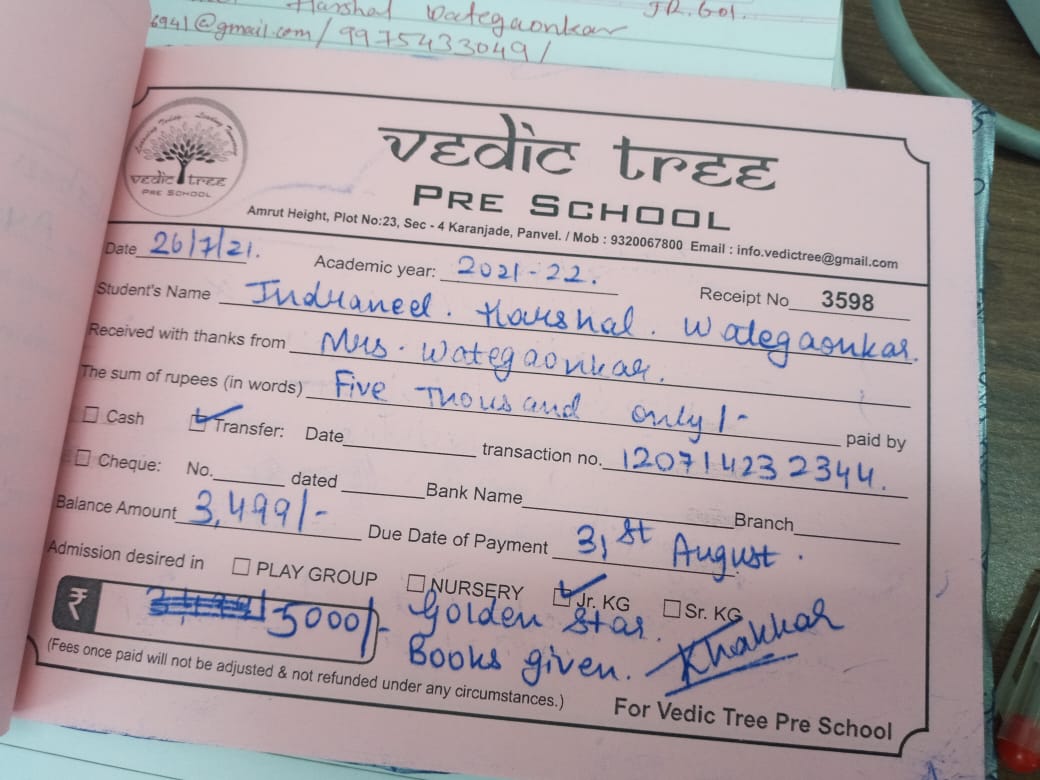 Harshal Wategaonkar JR.Gol.
6941@gmail.com/9975433049/
Learning Today Leading Tomorrow
vedic tree
PRE SCHOOL
vedic tree
PRE SCHOOL
Amrut Height, Plot No:23, Sec - 4 Karanjade, Panvel. / Mob : 9320067800 Email : info.vedictree@gmail.com
Date 26/7/21. Academic year: 2021-22. Receipt No 3598
Student's Name Indraneel. Harshal. Wategaonkar.
Received with thanks from Mrs. Wategaonkar.
The sum of rupees (in words) Five Thousand only/- paid by
Cash Transfer: Date transaction no. 120714232344.
Cheque: No. dated Bank Name Branch
Balance Amount 3,499/- Due Date of Payment 31st August.
Admission desired in PLAY GROUP NURSERY Jr. KG Sr. KG
₹ 5000/- Golden Star.
Books given. Khakkar
(Fees once paid will not be adjusted & not refunded under any circumstances.)
For Vedic Tree Pre School